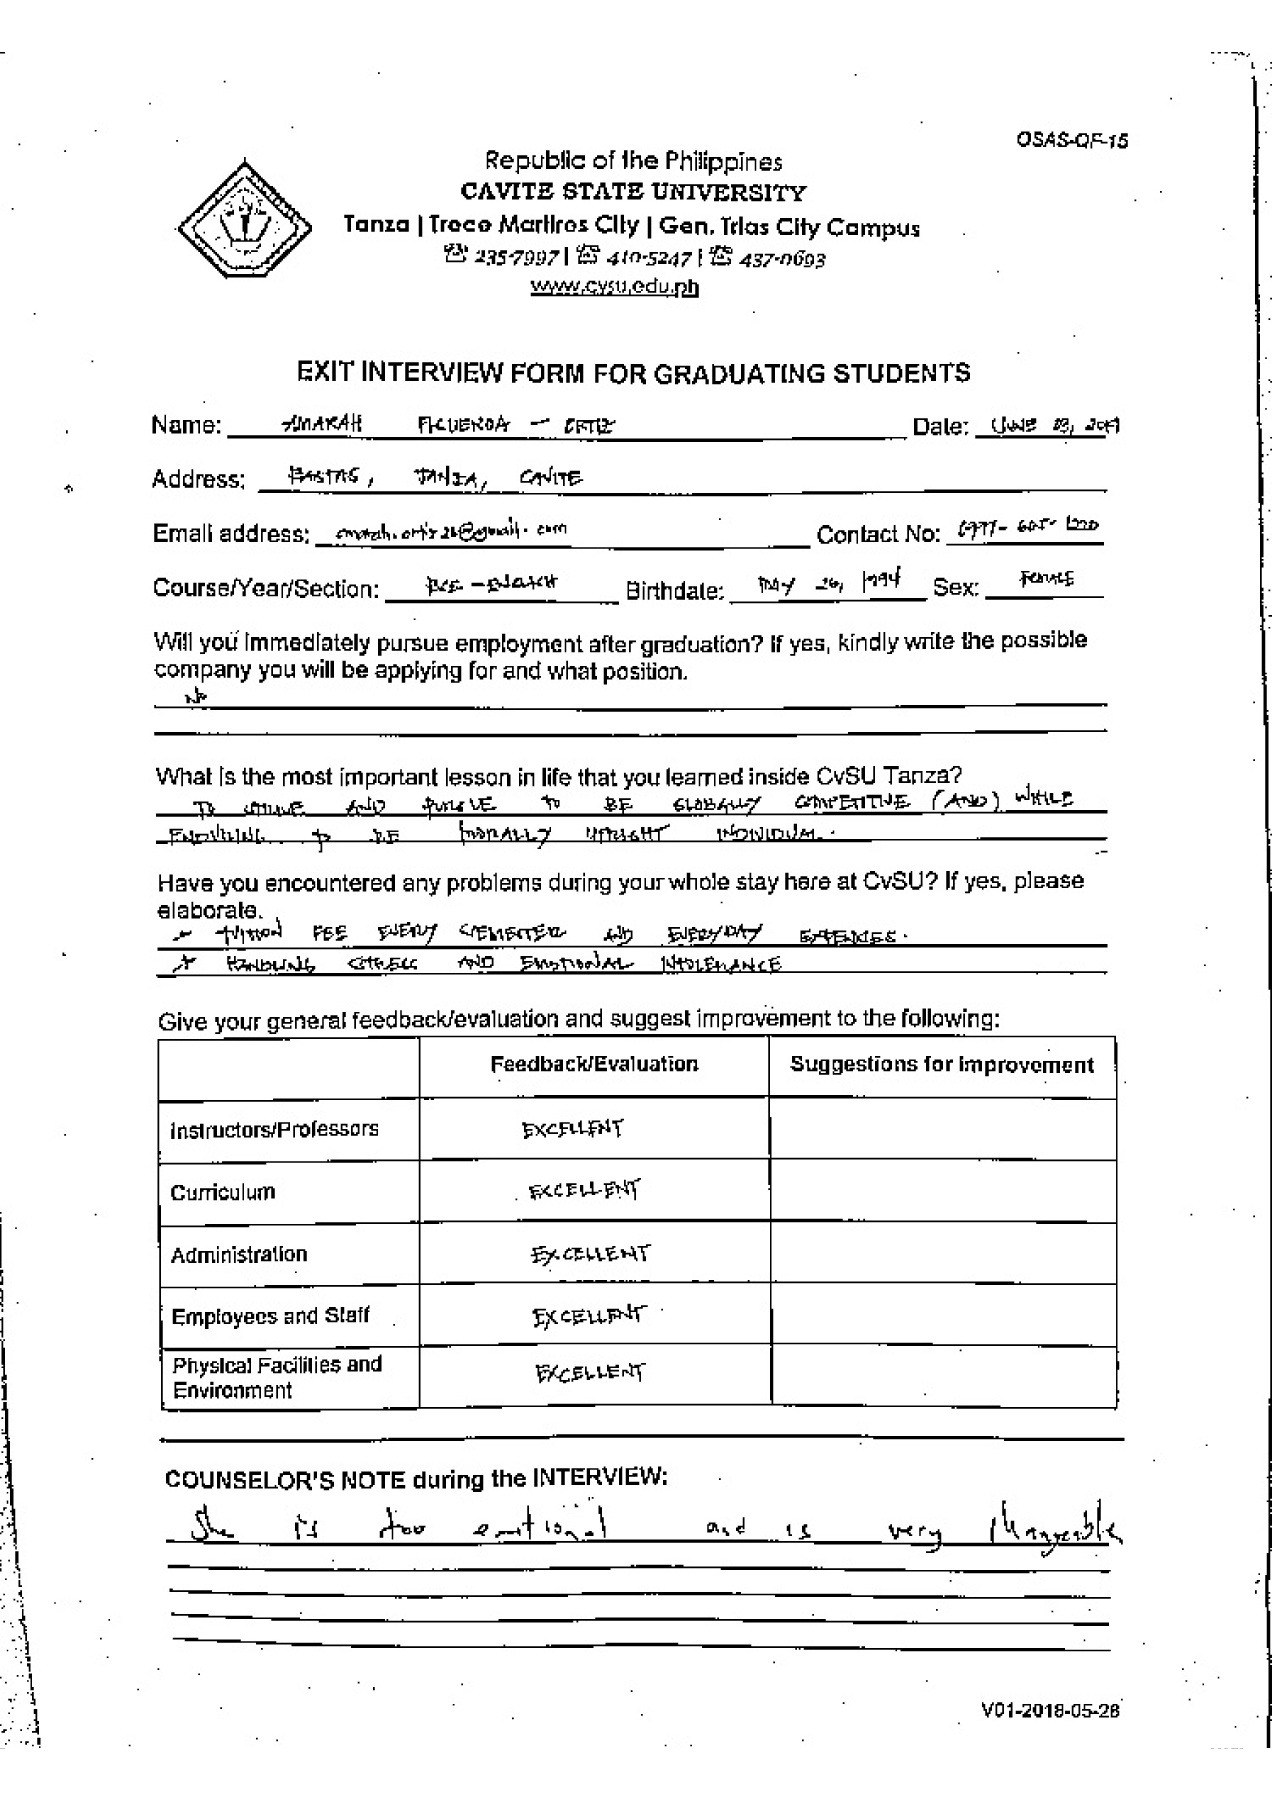 OSAS-QF-15
Republic of the Philippines
CAVITE STATE UNIVERSITY
Tanza | Trece Martires City | Gen. Trias City Campus
☎ 235-7997 | ☎ 410-5247 | ☎ 437-0693
www.cvsu.edu.ph
EXIT INTERVIEW FORM FOR GRADUATING STUDENTS
Name: AMARAH FIGUEROA - ORTIZ Date: JUNE
Address: TANZA, CAVITE
Email address: Contact No:
Course/Year/Section: Birthdate: MAY 26, 1994 Sex: FEMALE
Will you immediately pursue employment after graduation? If yes, kindly write the possible
company you will be applying for and what position.
No
What is the most important lesson in life that you learned inside CvSU Tanza?
TO AND PURSUE TO BE GLOBALLY COMPETITIVE (AND) WHILE
TO BE MORALLY UPRIGHT INDIVIDUAL.
Have you encountered any problems during your whole stay here at CvSU? If yes, please
elaborate.
* TUITION FEE EVERY SEMESTER AND EVERYDAY EXPENSES.
* HANDLING STRESS AND EMOTIONAL INTOLERANCE
Give your general feedback/evaluation and suggest improvement to the following:
Feedback/Evaluation Suggestions for improvement
Instructors/Professors EXCELLENT
Curriculum EXCELLENT
Administration EXCELLENT
Employees and Staff EXCELLENT
Physical Facilities and
Environment EXCELLENT
COUNSELOR'S NOTE during the INTERVIEW:
She is too emotional and is very changeable
V01-2018-05-28